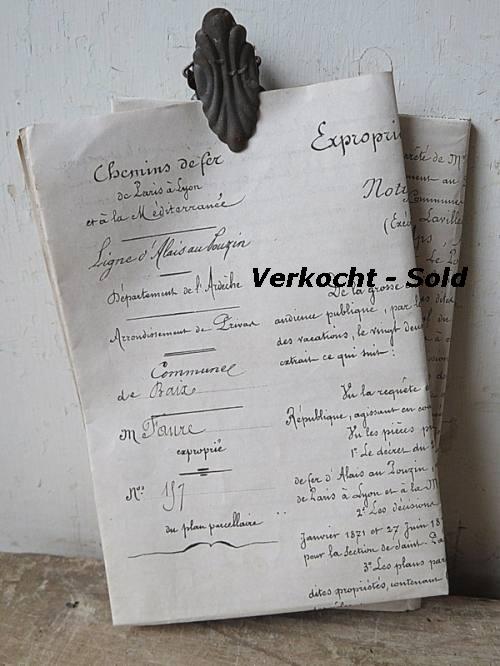 Chemins de fer
de Paris à Lyon
et à la Méditerranée
Ligne d'Alais au Pouzin
Département de l'Ardèche
Arrondissement de Privas
Commune
de Baix
M Faure
exproprié
Nos 157
du plan parcellaire
Expropri
Not
(Ex
De la grosse
audience publique, par
des vacations, le vingt deu
extrait ce qui suit :
Vu la requête
République, agissant en
Vu les pièces
1° Le décret du
de fer d'Alais au Pouzin,
de Paris à Lyon et à la M
2° Les décisions
janvier 1871 et 27 juin 18
pour la section de Saint
3° Les plans par
dites propriétés, contenant
rêté de M
ment au
Commune
Laville
Verkocht - Sold